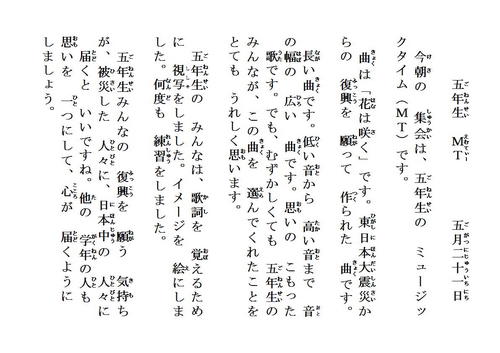 五年生　MT　　五月二十一日
今朝の　集会は、五年生の　ミュージッ
クタイム（MT）です。
曲は「花は咲く」です。東日本大震災か
らの　復興を　願って　作られた　曲です。
長い曲です。低い音から　高い音まで　音
の幅の　広い　曲です。思いの　こもった
歌です。でも、むずかしくても　五年生の
みんなが、この曲を　選んでくれたことを
とても　うれしく思います。
五年生の　みんなは、歌詞を　覚えるため
に　視写をしました。イメージを　絵にしま
した。何度も　練習をしました。
五年生みんなの　復興を　願う　気持ち
が、被災した　人々に、日本中の　人々に
届くと　いいですね。他の　学年の人も
思いを　一つにして、心が　届くように
しましょう。